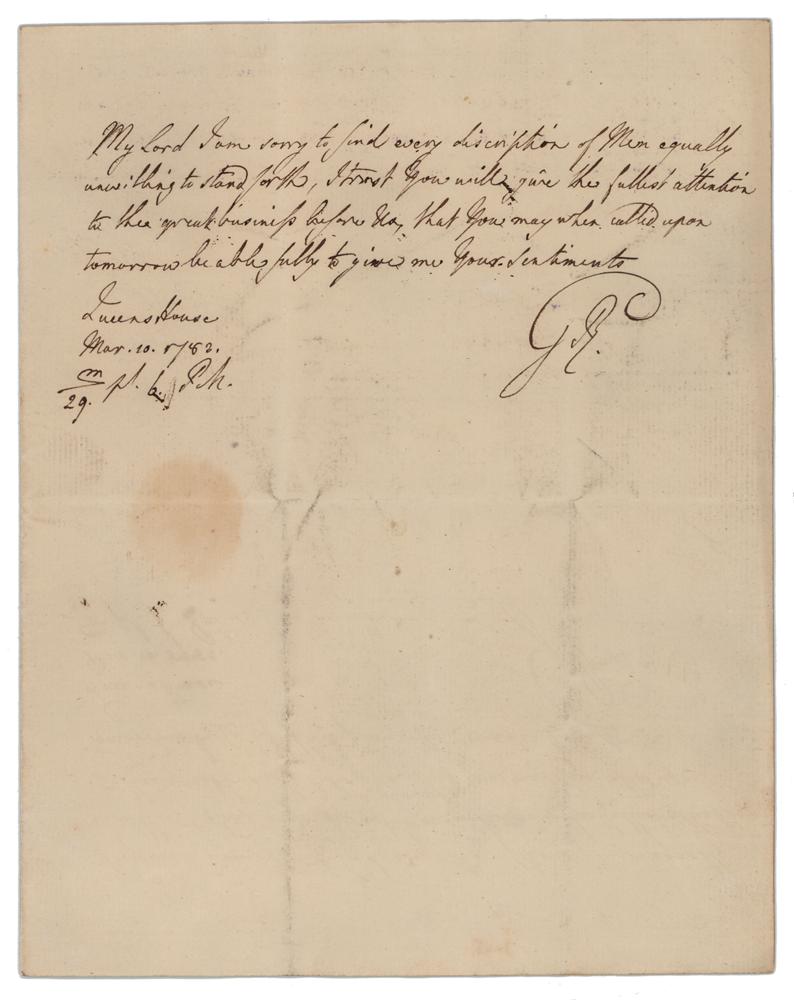 My Lord I am sorry to find every discription of Men equally
unwilling to stand forth, I trust You will give the fullest attention
to the great business before Us, that You may when called upon
tomorrow be able fully to give me Your Sentiments
Queens House
Mar. 10. 1782.
m/29. pt. 6. P.M.
GR.